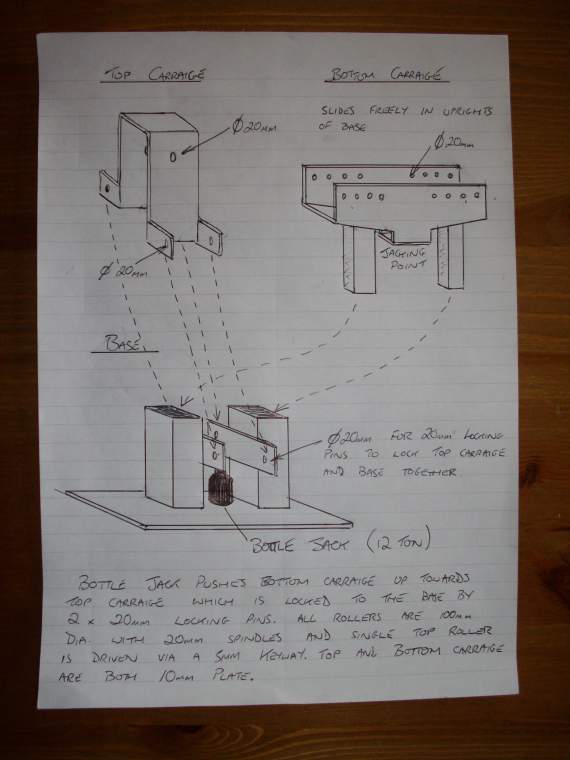 TOP CARRAIGE
BOTTOM CARRAIGE
SLIDES FREELY IN UPRIGHTS
OF BASE
Ø 20mm
Ø 20mm
Ø 20mm
JACKING
POINT
BASE.
Ø 20mm FOR 20mm LOCKING
PINS TO LOCK TOP CARRAIGE
AND BASE TOGETHER.
BOTTLE JACK (12 TON)
BOTTLE JACK PUSHES BOTTOM CARRAIGE UP TOWARDS
TOP CARRAIGE WHICH IS LOCKED TO THE BASE BY
2 x 20mm LOCKING PINS. ALL ROLLERS ARE 100mm
DIA WITH 20mm SPINDLES AND SINGLE TOP ROLLER
IS DRIVEN VIA A 5mm KEYWAY. TOP AND BOTTOM CARRAIGE
ARE BOTH 10mm PLATE.